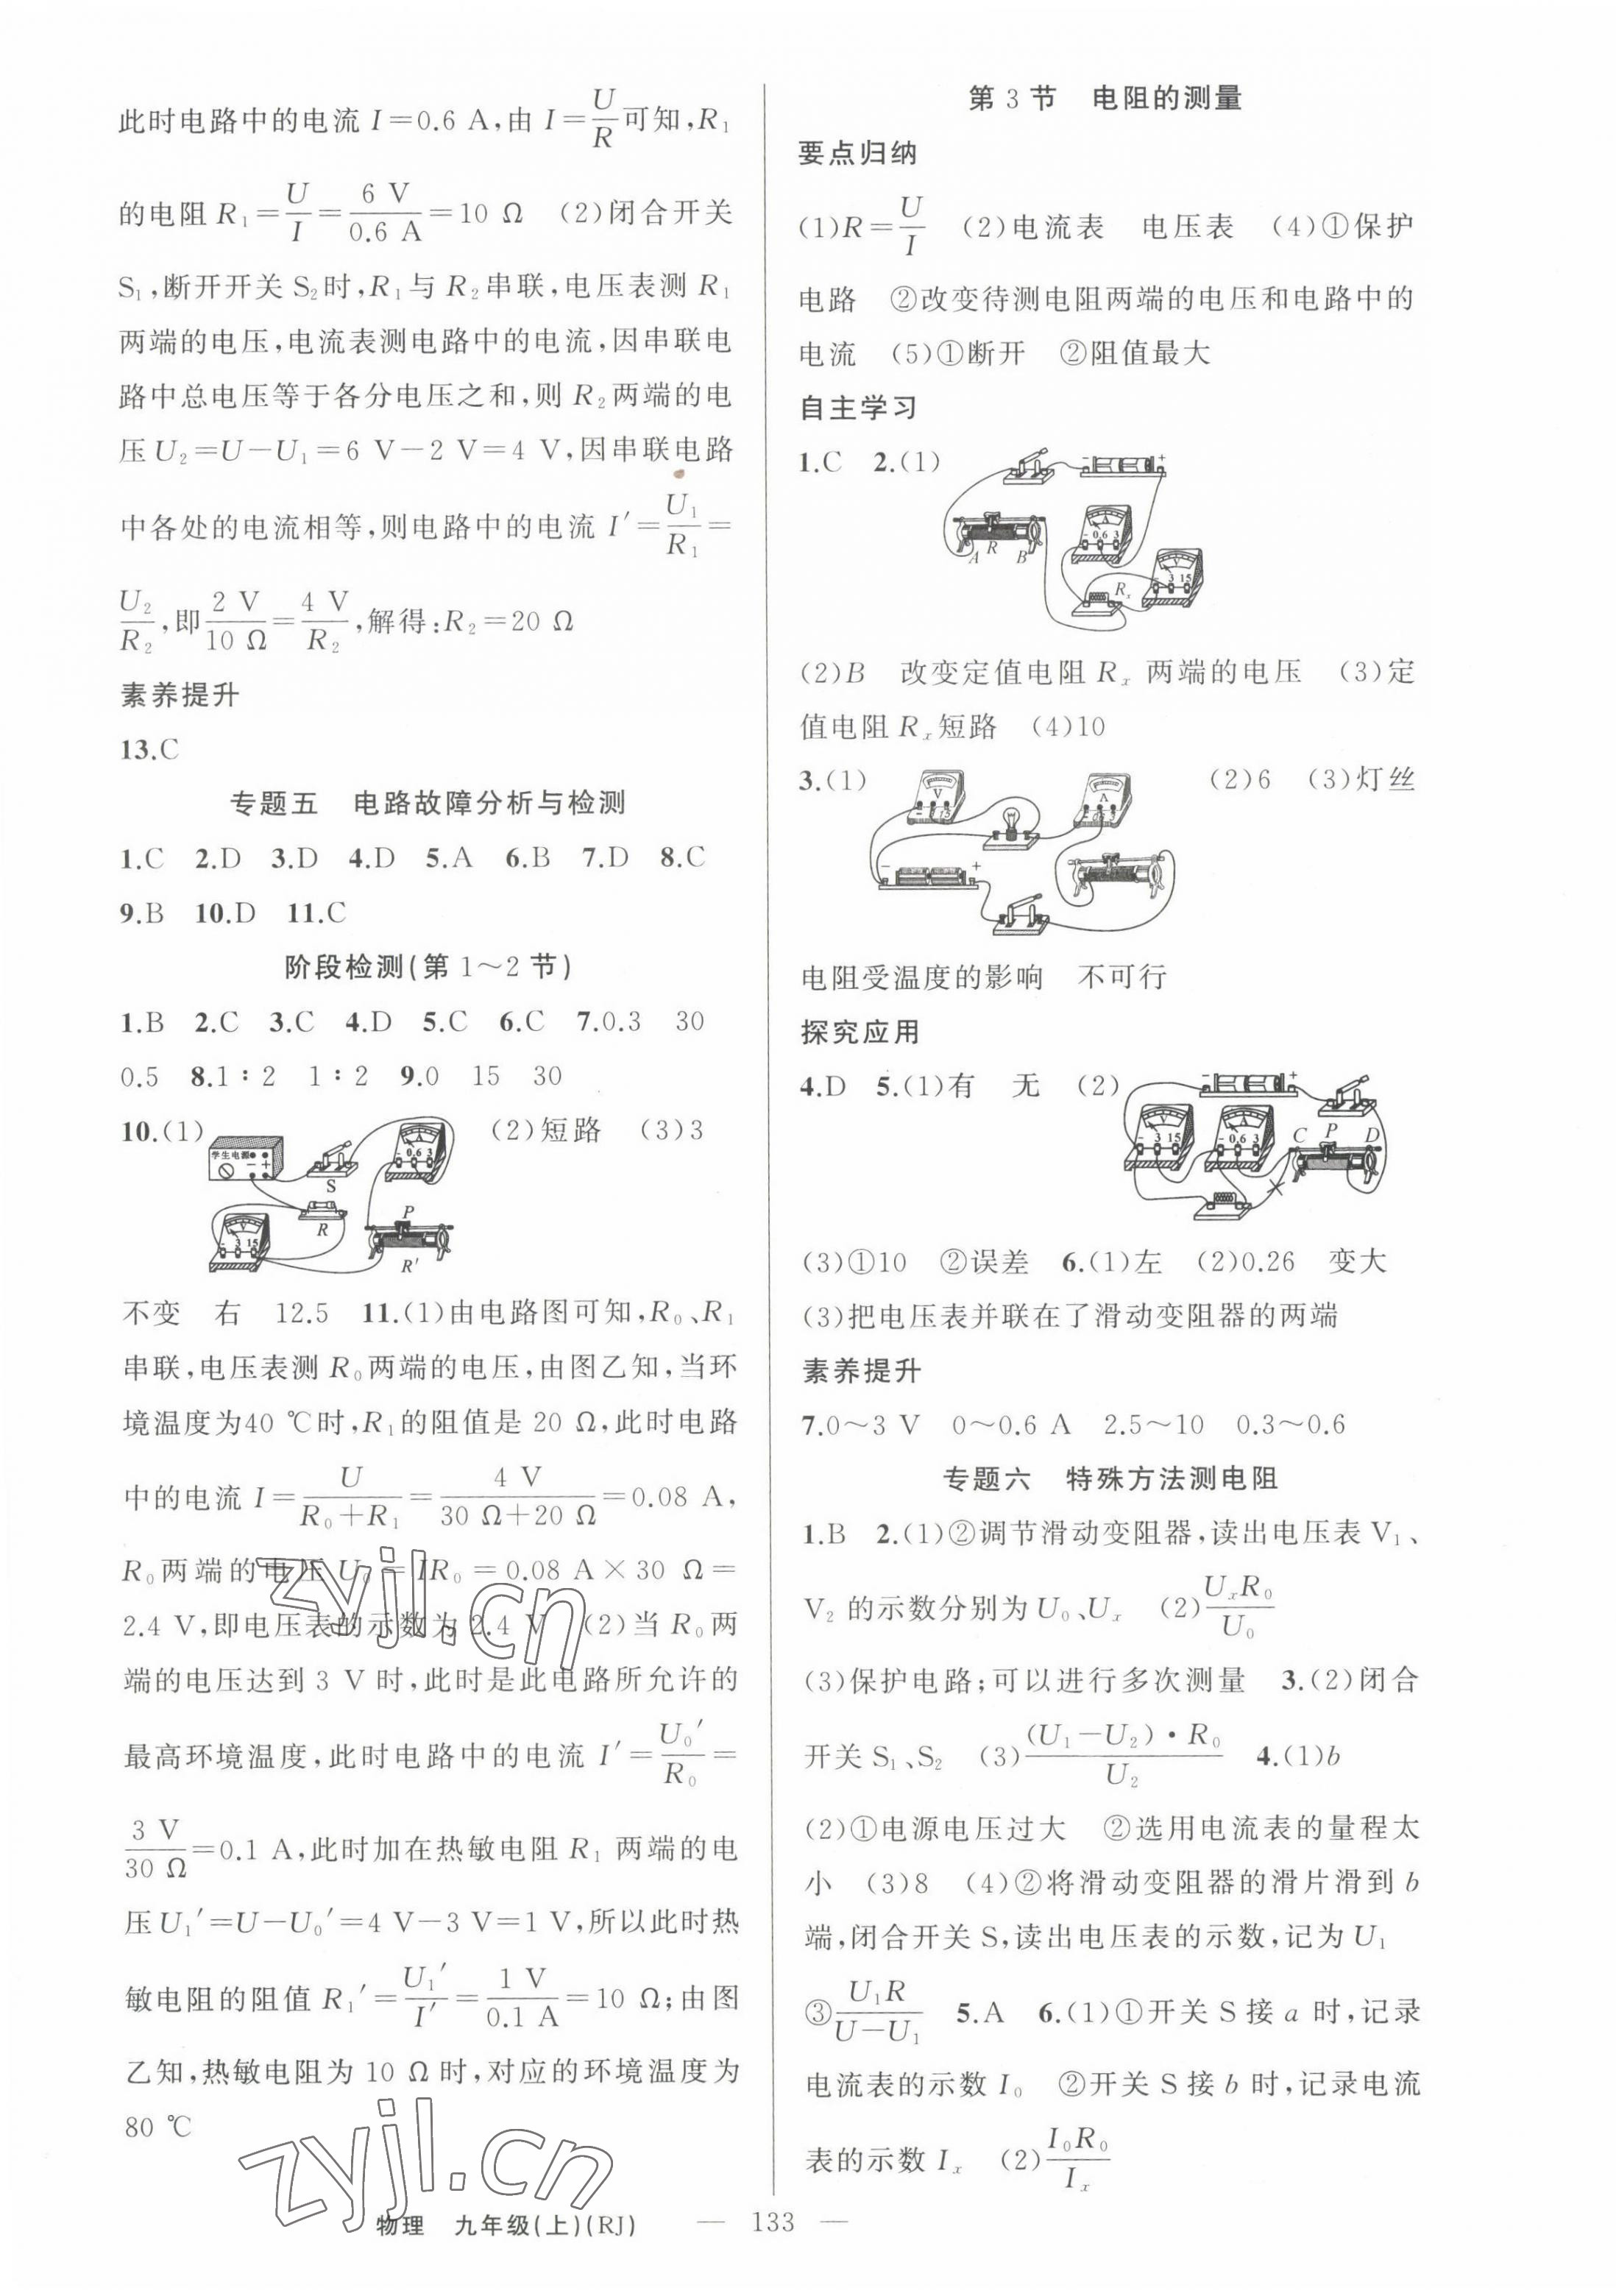 此时电路中的电流 I＝0.6 A,由 I＝U/R可知,R₁
的电阻 R₁＝U/I＝6 V/0.6 A＝10 Ω　(2)闭合开关
S₁,断开开关 S₂时,R₁与 R₂串联,电压表测 R₁
两端的电压,电流表测电路中的电流,因串联电
路中总电压等于各分电压之和,则 R₂两端的电
压 U₂＝U－U₁＝6 V－2 V＝4 V,因串联电路
中各处的电流相等,则电路中的电流 I′＝U₁/R₁＝
U₂/R₂,即2 V/10 Ω＝4 V/R₂,解得:R₂＝20 Ω
素养提升
13.C
专题五　电路故障分析与检测
1.C　2.D　3.D　4.D　5.A　6.B　7.D　8.C
9.B　10.D　11.C
阶段检测(第 1～2 节)
1.B　2.C　3.C　4.D　5.C　6.C　7.0.3　30
0.5　8.1∶2　1∶2　9.0　15　30
10.(1)　(2)短路　(3)3
学生电源
－ ＋
S
A
－ 0.6 3
R
V
－ 3 15
P
R′
不变　右　12.5　11.(1)由电路图可知,R₀、R₁
串联,电压表测 R₀两端的电压,由图乙知,当环
境温度为40 ℃时,R₁的阻值是 20 Ω,此时电路
中的电流 I＝U/(R₀＋R₁)＝4 V/(30 Ω＋20 Ω)＝0.08 A,
R₀两端的电压 U₀＝IR₀＝0.08 A×30 Ω＝
2.4 V,即电压表的示数为 2.4 V　(2)当 R₀两
端的电压达到 3 V 时,此时是此电路所允许的
最高环境温度,此时电路中的电流 I′＝U₀′/R₀＝
3 V/30 Ω＝0.1 A,此时加在热敏电阻 R₁ 两端的电
压 U₁′＝U－U₀′＝4 V－3 V＝1 V,所以此时热
敏电阻的阻值 R₁′＝U₁′/I′＝1 V/0.1 A＝10 Ω;由图
乙知,热敏电阻为 10 Ω 时,对应的环境温度为
80 ℃
第 3 节　电阻的测量
要点归纳
(1)R＝U/I　(2)电流表　电压表　(4)①保护
电路　②改变待测电阻两端的电压和电路中的
电流　(5)①断开　②阻值最大
自主学习
1.C　2.(1)
－ ＋
A
－ 0.6 3
A R B
V
－ 3 15
Rₓ
(2)B　改变定值电阻 Rₓ 两端的电压　(3)定
值电阻 Rₓ短路　(4)10
3.(1)　(2)6　(3)灯丝
V
A
－ ＋
电阻受温度的影响　不可行
探究应用
4.D　5.(1)有　无　(2)
－ ＋
V
－ 3 15
A
－ 0.6 3
C P D
(3)①10　②误差　6.(1)左　(2)0.26　变大
(3)把电压表并联在了滑动变阻器的两端
素养提升
7.0～3 V　0～0.6 A　2.5～10　0.3～0.6
专题六　特殊方法测电阻
1.B　2.(1)②调节滑动变阻器,读出电压表 V₁、
V₂ 的示数分别为 U₀、Uₓ　(2)UₓR₀/U₀
(3)保护电路;可以进行多次测量　3.(2)闭合
开关 S₁、S₂　(3)(U₁－U₂)·R₀/U₂　4.(1)b
(2)①电源电压过大　②选用电流表的量程太
小　(3)8　(4)②将滑动变阻器的滑片滑到 b
端,闭合开关 S,读出电压表的示数,记为 U₁
③U₁R/(U－U₁)　5.A　6.(1)①开关 S 接 a 时,记录
电流表的示数 I₀　②开关 S 接 b 时,记录电流
表的示数 Iₓ　(2)I₀R₀/Iₓ
zyjl.cn
zyjl.cn
物理　九年级(上)(RJ)　— 133 —